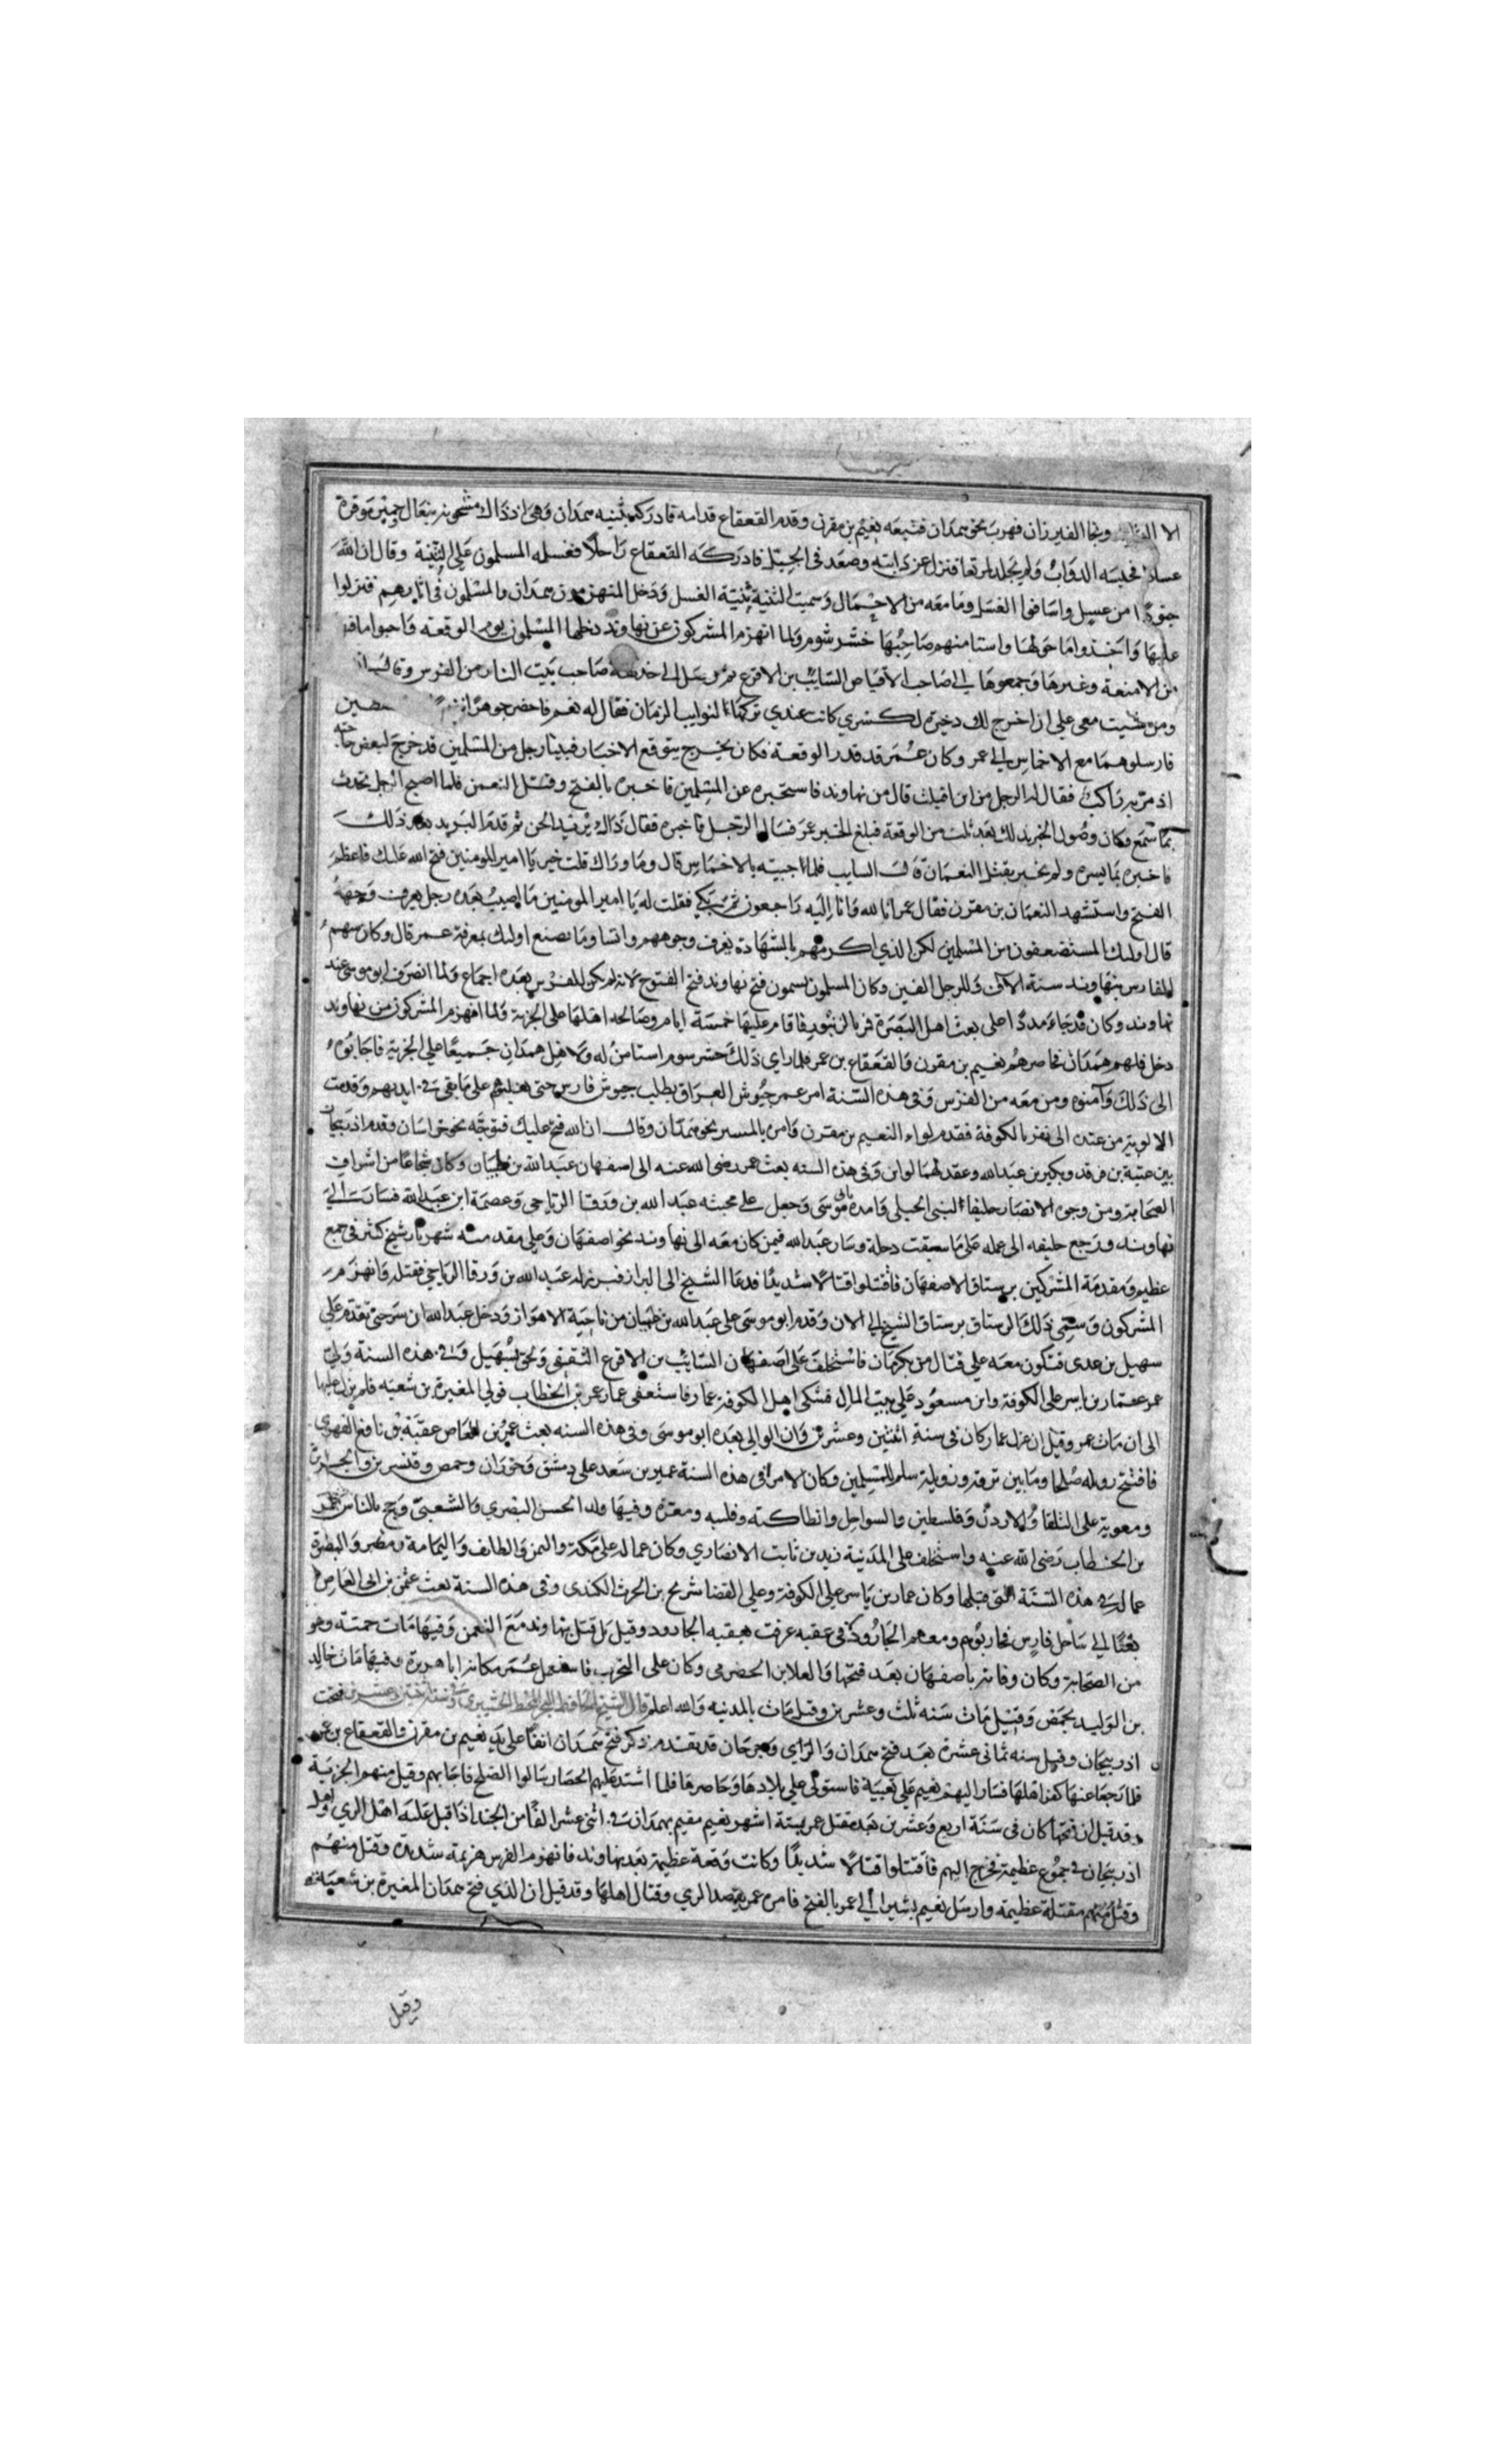 الا القليل ونجا الفيرزان فهرب نحو همدان فتبعه نعيم بن مقرن وقدم القعقاع قدامه فادركه بثنيه همدان وهي اذ ذاك مشحونه ببغال وحمير موقرة
عسلا فحبسه الدواب ولم يجد طريقا فنزل عن دابته وصعد في الجبل فادركه القعقاع راجلا فقتله المسلمون علي الثنية وقال ان لله
جنودا من عسل واستاقوا العسل وما معه من الاحمال وسميت الثنية ثنية العسل ودخل المنهزمون همدان والمسلمون في اثارهم فنزلوا
عليها واخذوا ما حولها واستامنهم صاحبها خشر شوم ولما انهزم المشركون عن نهاوند دخلها المسلمون يوم الوقعه واحووا ما فيها
من الامتعة وغيرها وجمعوها الي صاحب الاقباض السايب بن الاقرع صاحب بيت النار من الفرس وقال
ومن شيت معي علي ان اخرج لك ذخيرة لكسري كانت عندي تركها لنوايب الزمان فقال له نعم فاحضر جوهرا
فارسلوهما مع الاخماس الي عمر وكان عمر قد قدر الوقعة فكان يخرج يتوقع الاخبار فبينا رجل من المسلمين قد خرج لبعض حاجته
اذ مر به راكب فقال له الرجل من اين اقبلت قال من نهاوند فاستخبره عن المسلمين فاخبره بالفتح وقتل النعمن فلما اصبح الرجل تحدث
بما سمع وكان وصول الخبر بذلك بعد ثلث من الوقعة فبلغ الخبر عمر فسال الرجل فاخبره فقال ذاك بريد الجن ثم قدم البريد بعد ذلك
فاخبره بما يسره ولم يخبر بقتل النعمان قال السايب فلما اجيته بالاخماس قال وما وراك قلت خير يا امير المومنين فتح الله عليك فاعظم
الفتح واستشهد النعمان بن مقرن فقال عمر انا لله وانا اليه راجعون ثم بكي فقلت له يا امير المومنين ما اصيب بعده رجل يعرف وجهه
قال اوليك المستضعفون من المسلمين لكن الذي اكرمهم بالشهادة يعرف وجوههم وانسابهم وما يصنع اوليك بمعرفة عمر قال وكان سهم
الفارس بنهاوند ستة الاف وللرجل الفين وكان المسلمون يسمون فتح نهاوند فتح الفتوح لانه لم يكن للفرس بعده اجماع ولما انصرف ابو موسي عند
نهاوند وكان قد جاء مددا علي بعث اهل البصرة فاقام عليها خمسة ايام وصالحه اهلها علي الجزية ولما انهزم المشركون من نهاوند
دخل فلهم همدان فحاصرهم نعيم بن مقرن والقعقاع بن عمر فلما راي ذلك خشر سوم استامن له ولاهل همدان جميعا علي الجزية فاجابوه
الي ذلك وآمنوه ومن معه من الفرس وفي هذه السنة امر عمر جيوش العراق بطلب جيوش فارس حتي يغلبهم علي ما بقي في ايديهم وقدمت
الالوية من عنده الي نفر بالكوفة فقدم لواء النعيم بن مقرن وامره بالمسير نحو همدان وقال ان الله فتح عليك فتوجه نحو خراسان وقدم اذربيجان
بين عتبة بن فرقد وبكير بن عبد الله وعقد لهما لواين وفي هذه السنه بعث عمر رضي الله عنه الي اصفهان عبد الله بن عتبان وكان شجاعا من اشراف
الصحابة ومن وجوه الانصار حليفا لبني الحبلي وامده بابي موسي وجعل علي مجنبته عبد الله بن ورقا الرياحي وعصمة ابن عبد الله فسارت الي
نهاوند ورجع حليفه الي عمله علي ما سقت دجلة وسار عبد الله فيمن كان معه الي نهاوند نحو اصفهان وعلي مقدمته شهريار شيخ كثر في جمع
عظيم ومقدمة المشركين برستاق لاصفهان فاقتتلوا قتالا شديدا فدعا الشيخ الي البراز فبرز له عبد الله بن ورقا الرياحي فقتله وانهزم
المشركون وسمي ذلك الرستاق برستاق الشيخ الي الان وقدم ابو موسي علي عبد الله بن عتبان من ناحية الاهواز ودخل عبد الله ان سر حتي تقدم علي
سهيل بن عدي فتكون معه علي قتال من بكرمان فاستخلف علي اصفهان السايب بن الاقرع الثقفي ولحق بسهيل وفي هذه السنة ولي
عمر عمار بن ياسر علي الكوفة وابن مسعود علي بيت المال فشكي اهل الكوفة عمار فاستعفي عمار عمر بن الخطاب فولي المغيرة بن شعبه فلم يزل عليها
الي ان مات عمر وقيل ان عزل عمار كان في سنة اثنتين وعشرين وان الوالي بعده ابو موسي وفي هذه السنه بعث عمرو بن العاص عقبة بن نافع الفهري
فافتتح زويله صلحا وما بين برقه وزويلة سلم للمسلمين وكان الامرا في هذه السنة عمير بن سعد علي دمشق وحوران وحمص وقنسرين والجزيرة
ومعوية علي البلقا والاردن وفلسطين والسواحل وانطاكيه وقلسيه ومعرة وفيها ولد الحسن البصري والشعبي وحج بالناس عمر
بن الخطاب رضي الله عنه واستخلف علي المدينة زيد بن ثابت الانصاري وكان عماله علي مكة واليمن والطايف واليمامة ومصر والبصرة
عماله في هذه السنة التي قبلها وكان عمار بن ياسر علي الكوفة وعلي القضا شريح بن الحرث الكندي وفي هذه السنة بعث عثمن بن ابي العاص
بعثا الي ساحل فارس فحاربوهم ومعهم الجارود في عقبه عرفت بعقبه الجارود وقيل بل قتل بنهاوند مع النعمن وفيها مات حممه وهو
من الصحابة وكان وفاته باصفهان بعد فتحها والعلا بن الحضرمي وكان علي البحرين فاستعمل عمر مكانه ابا هريرة وفيها مات خالد
بن الوليد بحمص وقيل مات سنه ثلث وعشرين وقيل مات بالمدينه والله اعلم فتحت
اذربيجان وقيل سنه ثماني عشرة بعد فتح همدان والراي وجرجان قد تقدم ذكر فتح همدان انفا علي يد نعيم بن مقرن والقعقاع بن عمر
فلما رجعا عنها كفر اهلها فسار اليهم نعيم علي تعبية فاستولي علي بلادها وحاصرها فلما اشتد عليهم الحصار سالوا الصلح فاجابهم وقبل منهم الجزية
وقد قيل ان فتحها كان في سنة اربع وعشرين بعد مقتل عمر بستة اشهر نعيم مقيم بهمدان في اثني عشر الفا من الجند اذ اقبل عليه اهل الري واهل
اذربيجان في جموع عظيمة فخرج اليهم فاقتتلوا قتالا شديدا وكانت وقعة عظيمة بعد نهاوند فانهزم الفرس هزيمة شديدة وقتل منهم
وقتل منهم مقتلة عظيمه وارسل نعيم بشيرا الي عمر بالفتح فامره عمر بقصد الري وقتال اهلها وقد قيل ان الذي فتح همدان المغيرة بن شعبة
وقيل